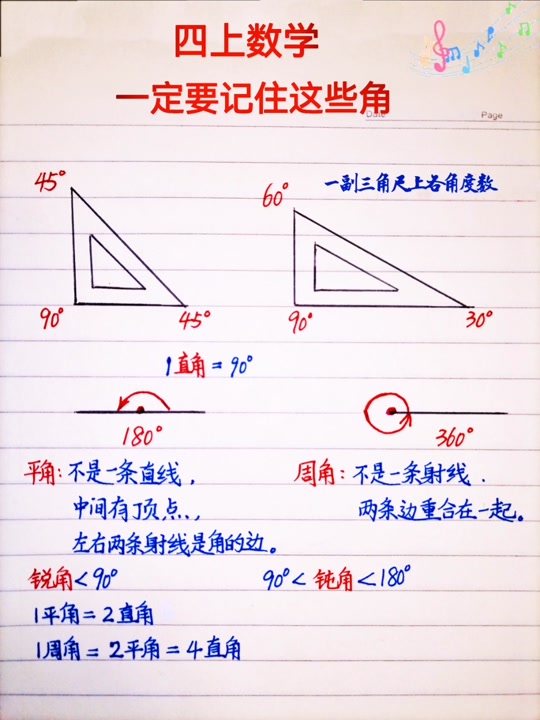 四上数学
一定要记住这些角
Date
Page
一副三角尺上各角度数
45°
60°
90°
45°
90°
30°
1直角=90°
180°
360°
平角:不是一条直线,
中间有顶点,
左右两条射线是角的边。
周角:不是一条射线.
两条边重合在一起。
锐角<90°
90°<钝角<180°
1平角=2直角
1周角=2平角=4直角